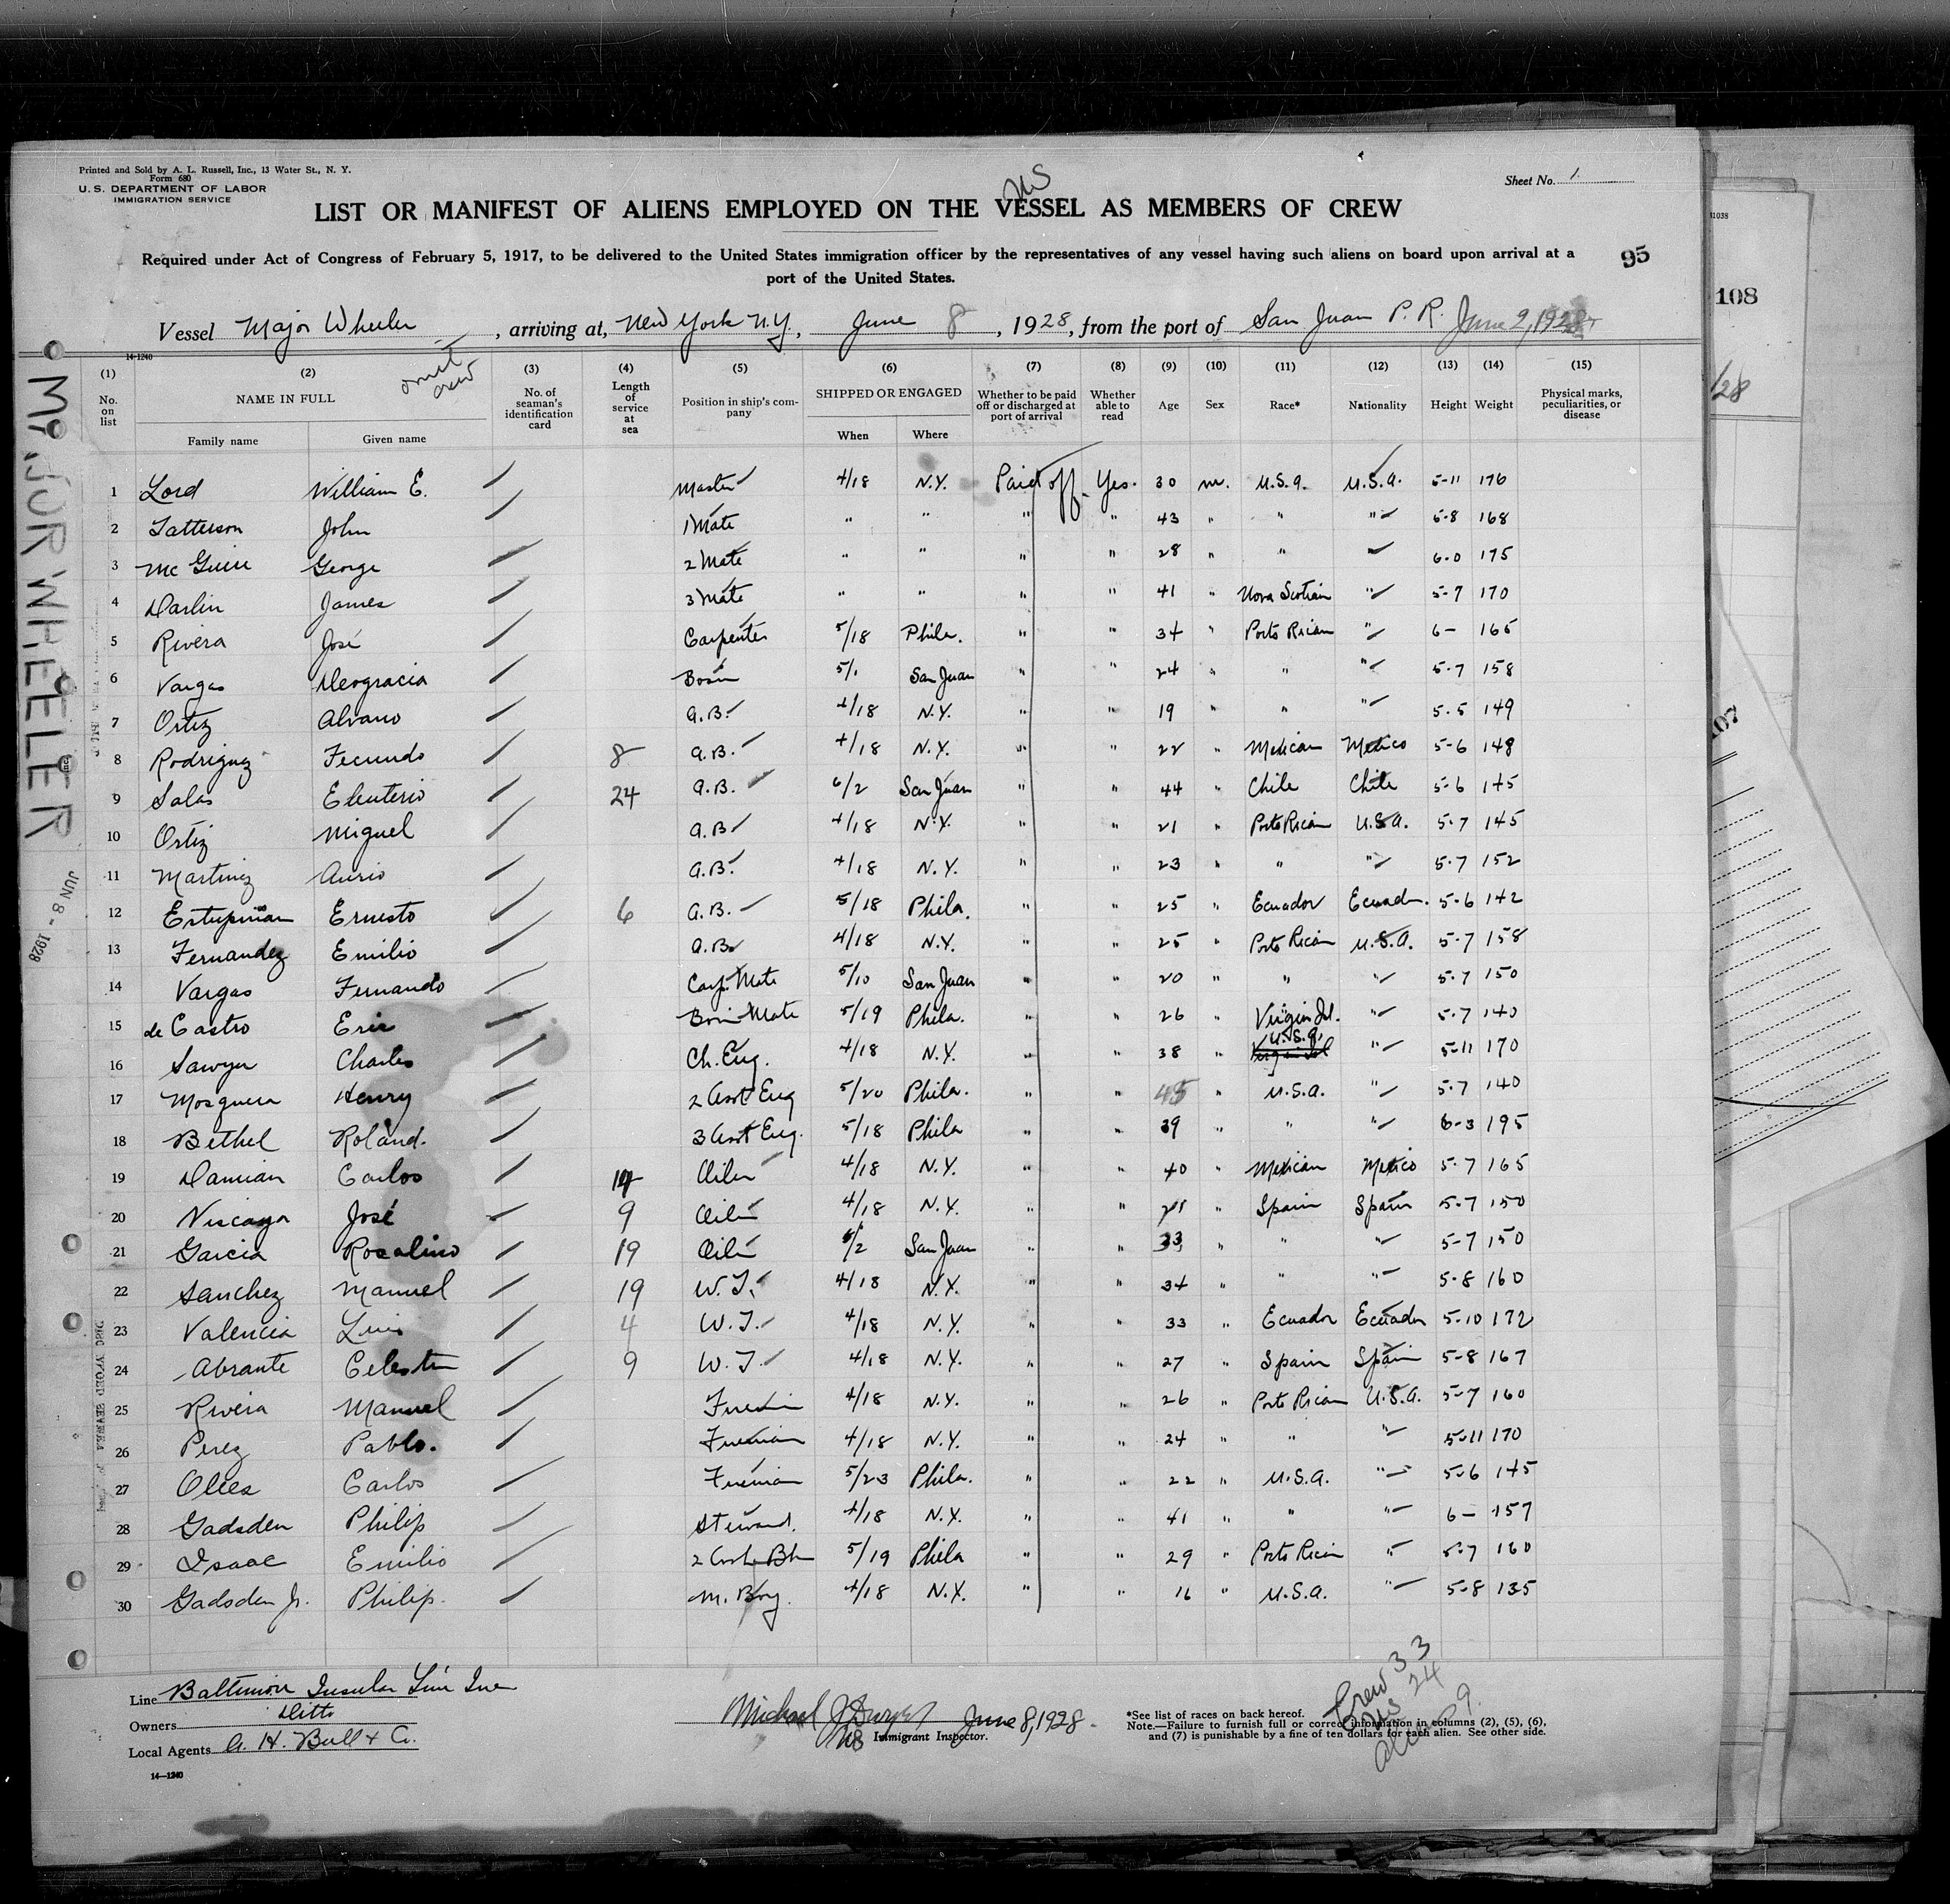 Printed and Sold by A. L. Russell, Inc., 13 Water St., N. Y.
Form 680
U. S. DEPARTMENT OF LABOR
IMMIGRATION SERVICE
Sheet No. 1
US
LIST OR MANIFEST OF ALIENS EMPLOYED ON THE VESSEL AS MEMBERS OF CREW
Required under Act of Congress of February 5, 1917, to be delivered to the United States immigration officer by the representatives of any vessel having such aliens on board upon arrival at a
port of the United States.
95
Vessel Major Wheeler, arriving at, New York N.Y., June 8, 1928, from the port of San Juan P. R. June 2, 1928
14-1240
(1) (2) (3) (4) (5) (6) (7) (8) (9) (10) (11) (12) (13) (14) (15)
No. on list NAME IN FULL No. of seaman's identification card Length of service at sea Position in ship's company SHIPPED OR ENGAGED Whether to be paid off or discharged at port of arrival Whether able to read Age Sex Race* Nationality Height Weight Physical marks, peculiarities, or disease
Family name Given name When Where
1 Lord William E. Master 4/18 N.Y. Paid off Yes. 30 m. U.S.A. U.S.A. 5-11 176
2 Tatterson John 1 Mate " " " " 43 " " " 5-8 168
3 McGuire George 2 Mate " " " " 28 " " " 6-0 175
4 Darlin James 3 Mate " " " " 41 " Nova Scotian " 5-7 170
5 Rivera José Carpenter 5/18 Phila. " " 34 " Porto Rican " 6- 165
6 Vargas Deogracia Bosin 5/1 San Juan " " 24 " " " 5-7 158
7 Ortiz Alvaro A.B. 4/18 N.Y. " " 19 " " " 5-5 149
8 Rodriguez Fecundo 8 A.B. 4/18 N.Y. " " 22 " Mexican Mexico 5-6 148
9 Salas Eleuterio 24 A.B. 6/2 San Juan " " 44 " Chile Chile 5-6 145
10 Ortiz Miguel A.B. 4/18 N.Y. " " 21 " Porto Rican U.S.A. 5-7 145
11 Martinez A.B. 4/18 N.Y. " " 23 " " " 5-7 152
12 Estupiñan Ernesto 6 A.B. 5/18 Phila. " " 25 " Ecuador Ecuador 5-6 142
13 Fernandez Emilio A.B. 4/18 N.Y. " " 25 " Porto Rican U.S.A. 5-7 158
14 Vargas Fernando Carp. Mate 5/10 San Juan " " 20 " " " 5-7 150
15 de Castro Eric Bosin Mate 5/19 Phila. " " 26 " Virgin Isl. " 5-7 140
16 Sawyer Charles Ch. Eng. 4/18 N.Y. " " 38 " U.S.A. " 5-11 170
17 Mosquera Henry 2 Asst Eng 5/20 Phila. " " 45 " U.S.A. " 5-7 140
18 Bethel Roland. 3 Asst Eng. 5/18 Phila " " 39 " " " 6-3 195
19 Damian Carlos 14 Oiler 4/18 N.Y. " " 40 " Mexican Mexico 5-7 165
20 Viscaya José 9 Oiler 4/18 N.Y. " " " Spain Spain 5-7 150
21 Garcia Rosalino 19 Oiler 6/2 San Juan " " 33 " " " 5-7 150
22 Sanchez Manuel 19 W.T. 4/18 N.Y. " " 34 " " " 5-8 160
23 Valencia Luis 4 W.T. 4/18 N.Y. " " 33 " Ecuador Ecuador 5-10 172
24 Abrante Celestin 9 W.T. 4/18 N.Y. " " 27 " Spain Spain 5-8 167
25 Rivera Manuel Fireman 4/18 N.Y. " " 26 " Porto Rican U.S.A. 5-7 160
26 Perez Pablo. Fireman 4/18 N.Y. " " 24 " " " 5-11 170
27 Carlos Fireman 5/23 Phila. " " 22 " U.S.A. " 5-6 145
28 Gadsden Philip Steward. 4/18 N.Y. " " 41 " " " 6- 157
29 Isaac Emilio 2 5/19 Phila " " 29 " Porto Rican " 5-7 160
30 Gadsden Jr. Philip. M. Boy. 4/18 N.Y. " " 16 " U.S.A. " 5-8 135
Line Baltimore Insular Line Inc
Owners Ditto
Local Agents A. H. Bull & Co.
14—1240
Michael J Dwyer June 8, 1928.
Immigrant Inspector.
*See list of races on back hereof.
Note.—Failure to furnish full or correct information in columns (2), (5), (6),
and (7) is punishable by a fine of ten dollars for each alien. See other side.
Crew 33
US 24
Alien 9
MAJOR WHEELER
JUN 8 - 1928
108
107
/28
11038